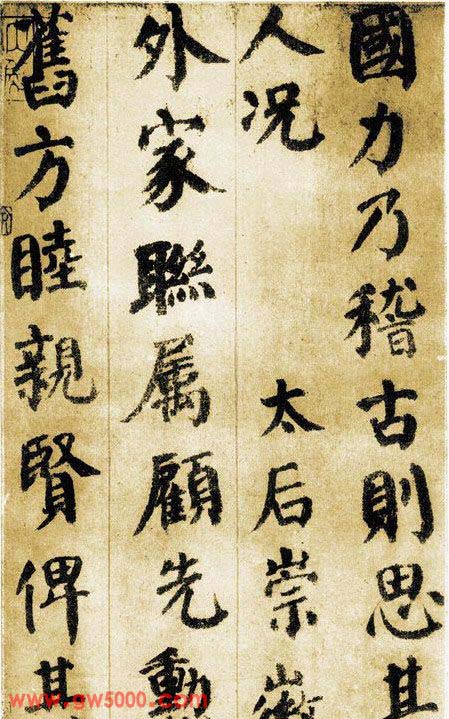 國力乃稽古則思其
人况 太后崇徽
外家聯属顧先動
舊方睦親賢俾其
www.gw5000.com